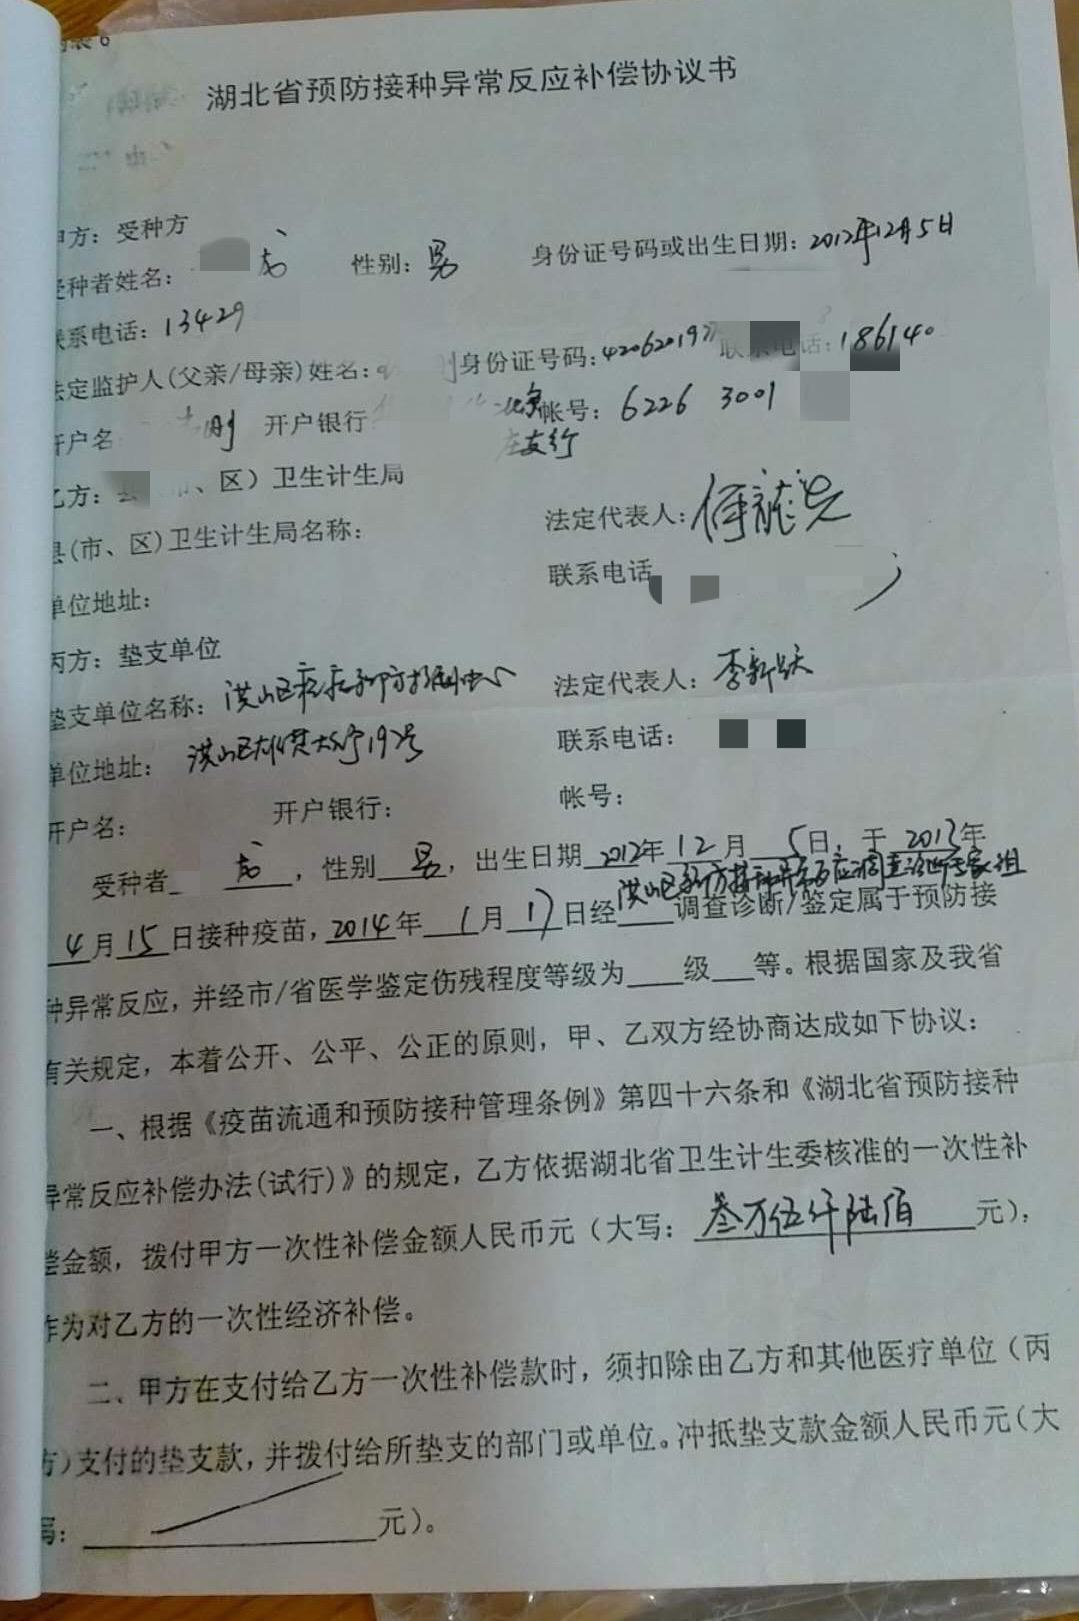 附表6
湖北省预防接种异常反应补偿协议书
甲方：受种方
受种者姓名： 性别：男 身份证号码或出生日期：2012年12月5日
联系电话：13429
法定监护人(父亲/母亲)姓名： 刚 身份证号码：420620197 联系电话：186140
开户名 刚 开户银行 北京 帐号：6226 3001
支行
乙方：县（市、区）卫生计生局
县(市、区)卫生计生局名称： 法定代表人：
单位地址： 联系电话
丙方：垫支单位
垫支单位名称：洪山区疾病预防控制中心 法定代表人：李新跃
单位地址：洪山区雄楚大道192号 联系电话：
开户名： 开户银行： 帐号：
受种者 ，性别 男 ，出生日期 2012年 12 月 5日，于 2013年
洪山区预防接种异常反应调查诊断专家组
4月15日接种疫苗，2014年 1月 17日经 调查诊断/鉴定属于预防接
种异常反应，并经市/省医学鉴定伤残程度等级为____级___等。根据国家及我省
有关规定，本着公开、公平、公正的原则，甲、乙双方经协商达成如下协议：
一、根据《疫苗流通和预防接种管理条例》第四十六条和《湖北省预防接种
异常反应补偿办法(试行)》的规定，乙方依据湖北省卫生计生委核准的一次性补
偿金额，拨付甲方一次性补偿金额人民币元（大写：叁万伍仟陆佰 元），
作为对乙方的一次性经济补偿。
二、甲方在支付给乙方一次性补偿款时，须扣除由乙方和其他医疗单位（丙
方)支付的垫支款，并拨付给所垫支的部门或单位。冲抵垫支款金额人民币元（大
写： 元）。